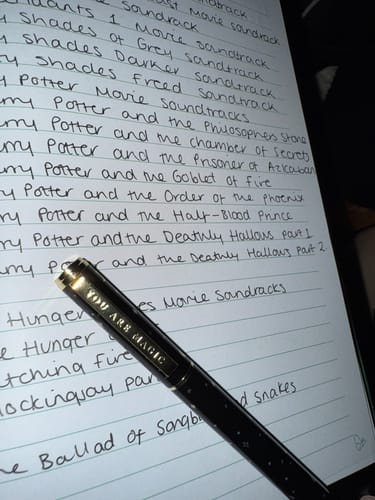 Movie soundtrack
1 Movie soundtrack
Shades of Grey soundtrack
Shades Darker Soundtrack
Shades Freed Soundtrack
Potter Movie Soundtracks
rry Potter and the Philosophers Stone
rry Potter and the Chamber of Secrets
rry Potter and the Prisoner of Azkaban
rry Potter and the Goblet of Fire
ry Potter and the Order of the Phoenix
rry Potter and the Half-Blood Prince
rry Potter and the Deathly Hallows part 1
rry Po and the Deathly Hallows part 2
Hunger es Movie Soundracks
e Hunger
tching Fire
lockingjay par
he Ballad of Songbi d Snakes
YOU ARE MAGIC